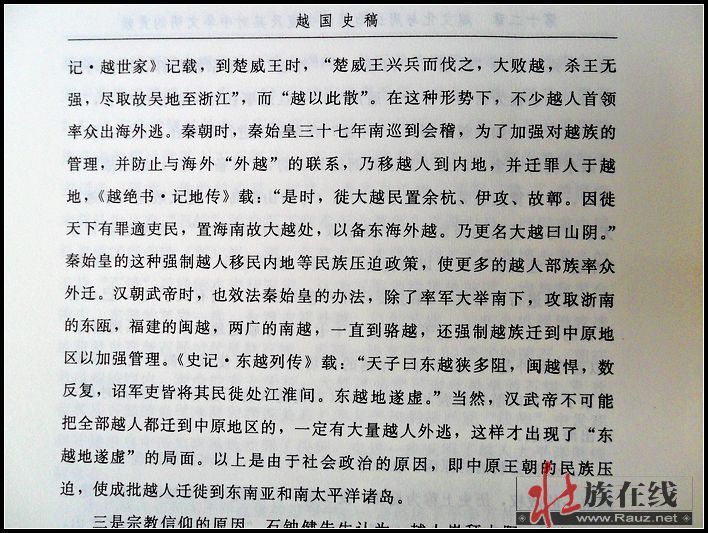 越国史稿
记·越世家》记载，到楚威王时，“楚威王兴兵而伐之，大败越，杀王无
强，尽取故吴地至浙江”，而“越以此散”。在这种形势下，不少越人首领
率众出海外逃。秦朝时，秦始皇三十七年南巡到会稽，为了加强对越族的
管理，并防止与海外“外越”的联系，乃移越人到内地，并迁罪人于越
地，《越绝书·记地传》载：“是时，徙大越民置余杭、伊攻、故鄣。因徙
天下有罪適吏民，置海南故大越处，以备东海外越。乃更名大越曰山阴。”
秦始皇的这种强制越人移民内地等民族压迫政策，使更多的越人部族率众
外迁。汉朝武帝时，也效法秦始皇的办法，除了率军大举南下，攻取浙南
的东瓯，福建的闽越，两广的南越，一直到骆越，还强制越族迁到中原地
区以加强管理。《史记·东越列传》载：“天子曰东越狭多阻，闽越悍，数
反复，诏军吏皆将其民徙处江淮间。东越地遂虚。”当然，汉武帝不可能
把全部越人都迁到中原地区的，一定有大量越人外逃，这样才出现了“东
越地遂虚”的局面。以上是由于社会政治的原因，即中原王朝的民族压
迫，使成批越人迁徙到东南亚和南太平洋诸岛。
三是宗教信仰的原因。石钟健先生认为，越人崇拜
壮族在线
www.Rauz.net